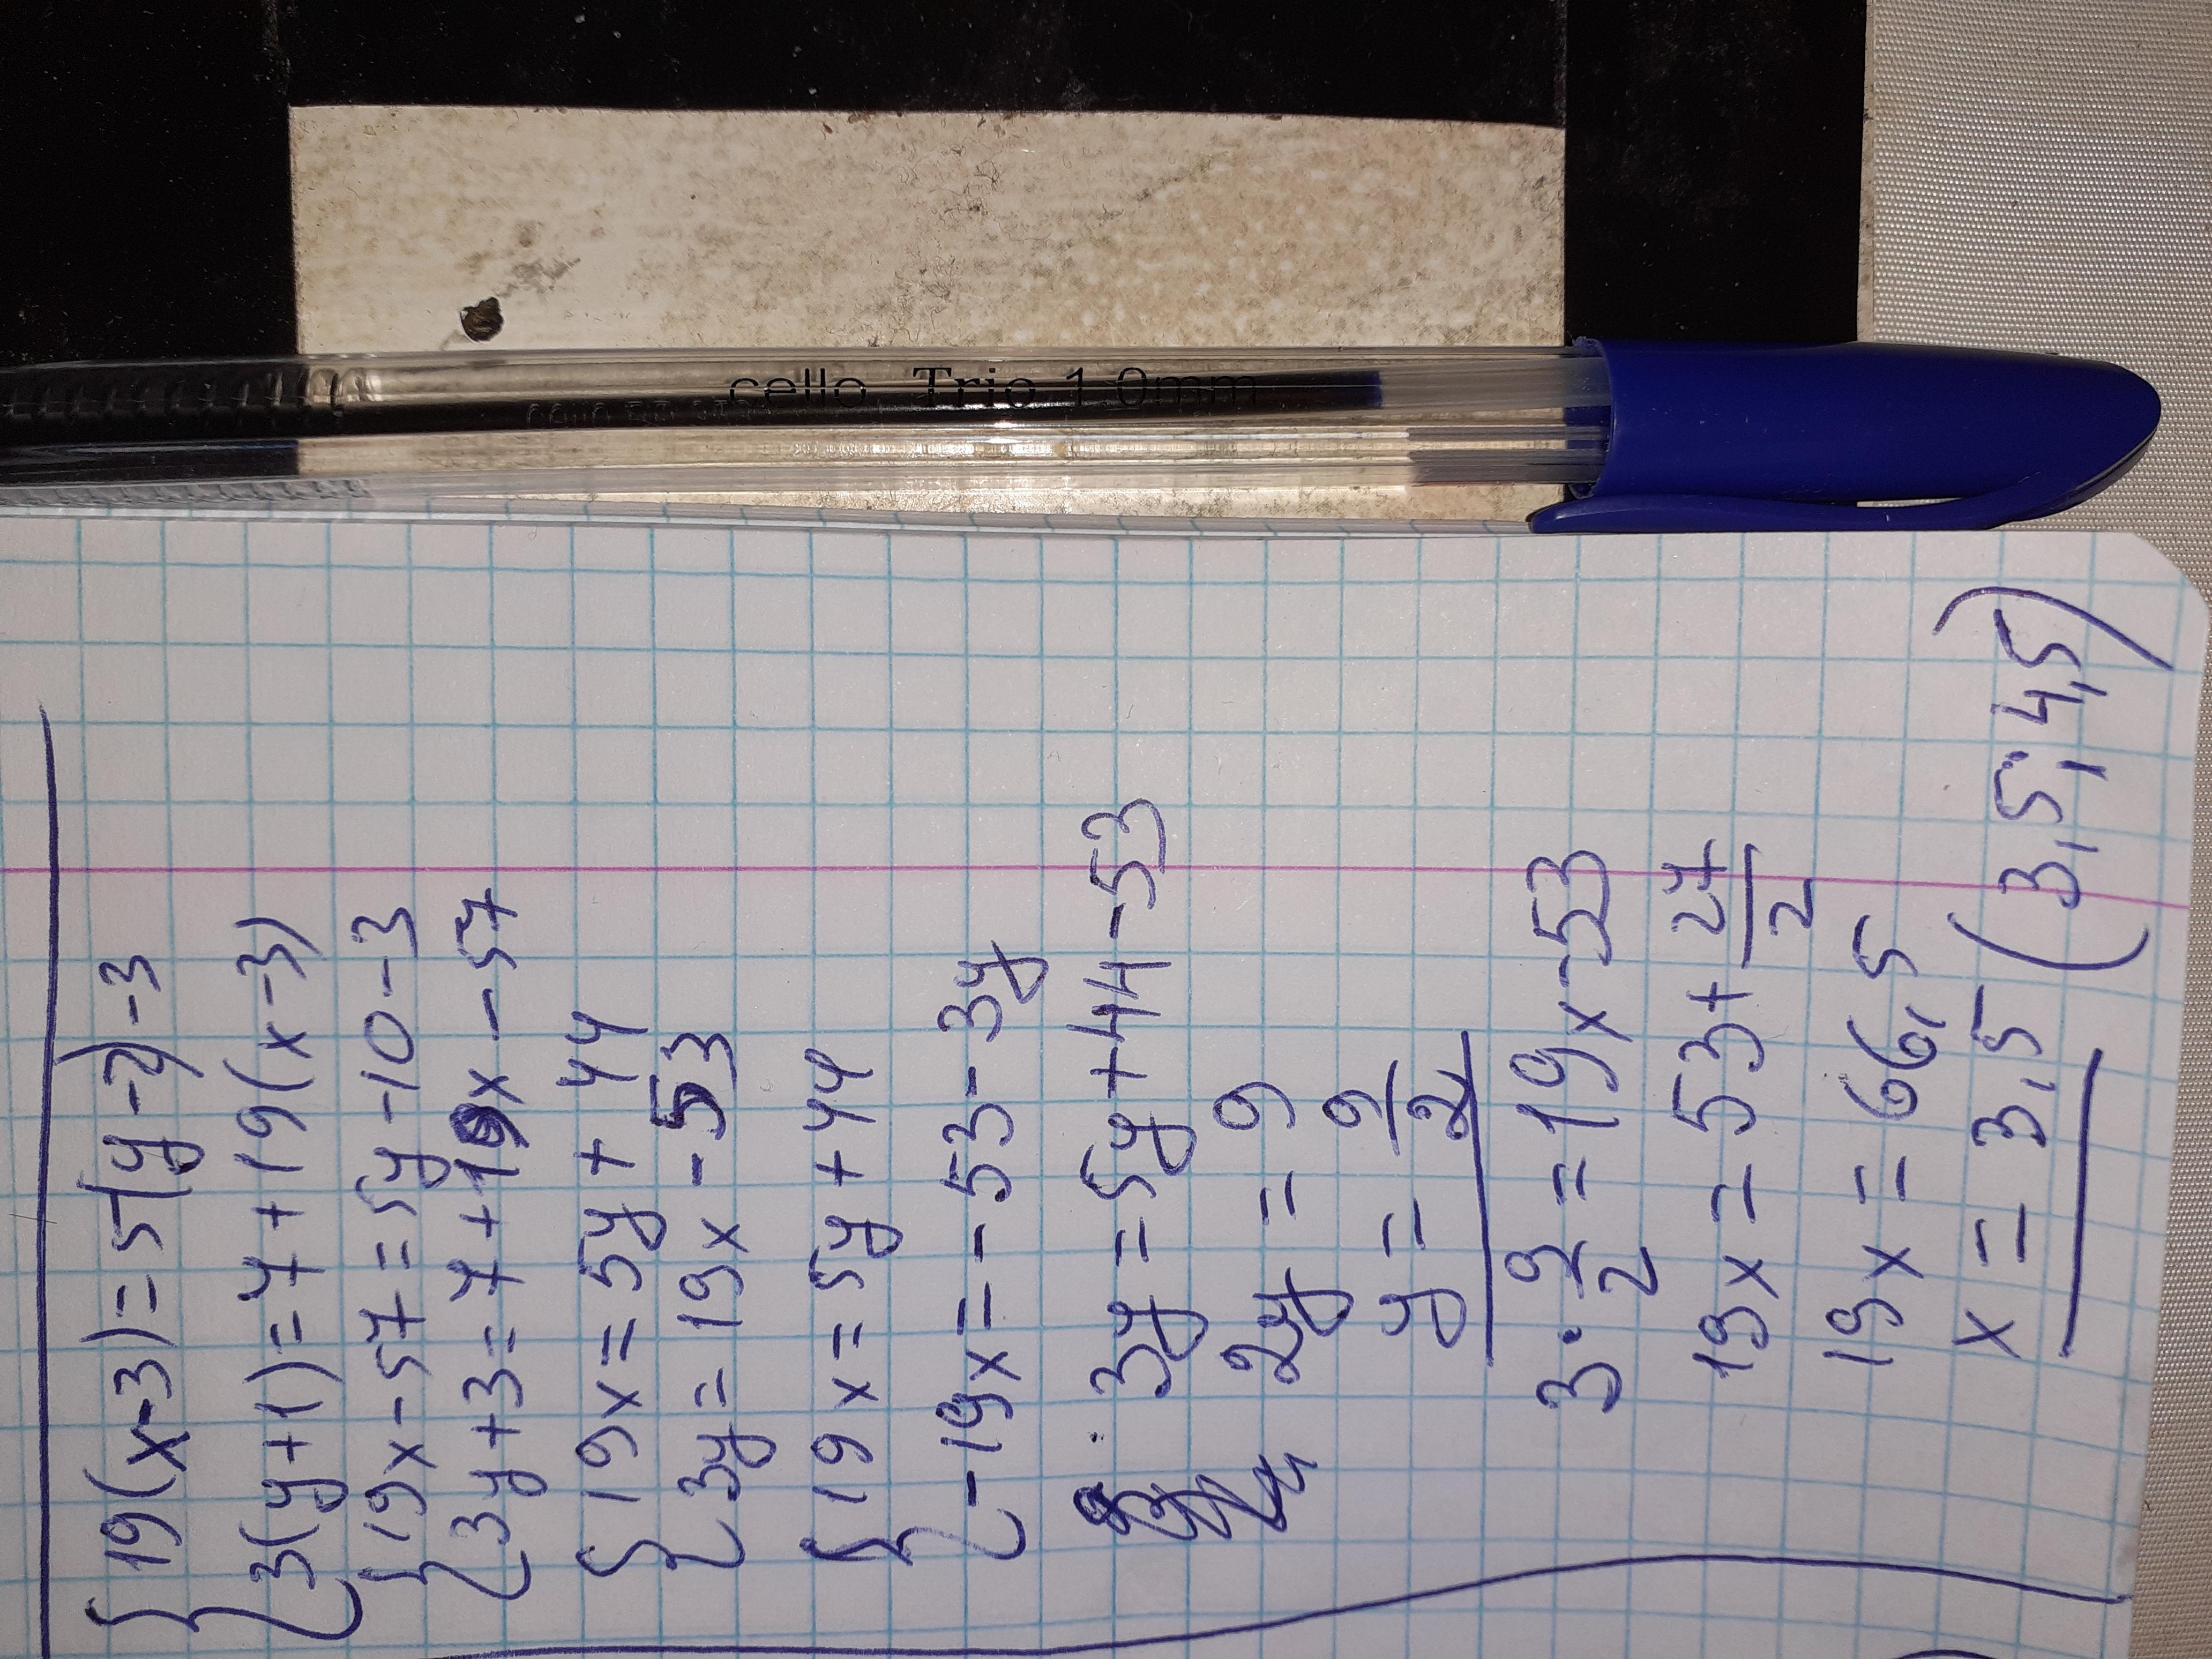 cello Trio 1.0mm
19(x-3)=5(y-2)-3
3(y+1)=7+19(x-3)
19x-57=5y-10-3
3y+3=7+19x-57
19x=5y+44
3y=19x-53
19x=5y+44
-19x=-53-3y
3y=5y+44-53
2y=9
y=9/2
3·9/2=19x-53
19x=53+27/2
19x=66,5
x=3,5 (3,5; 4,5)